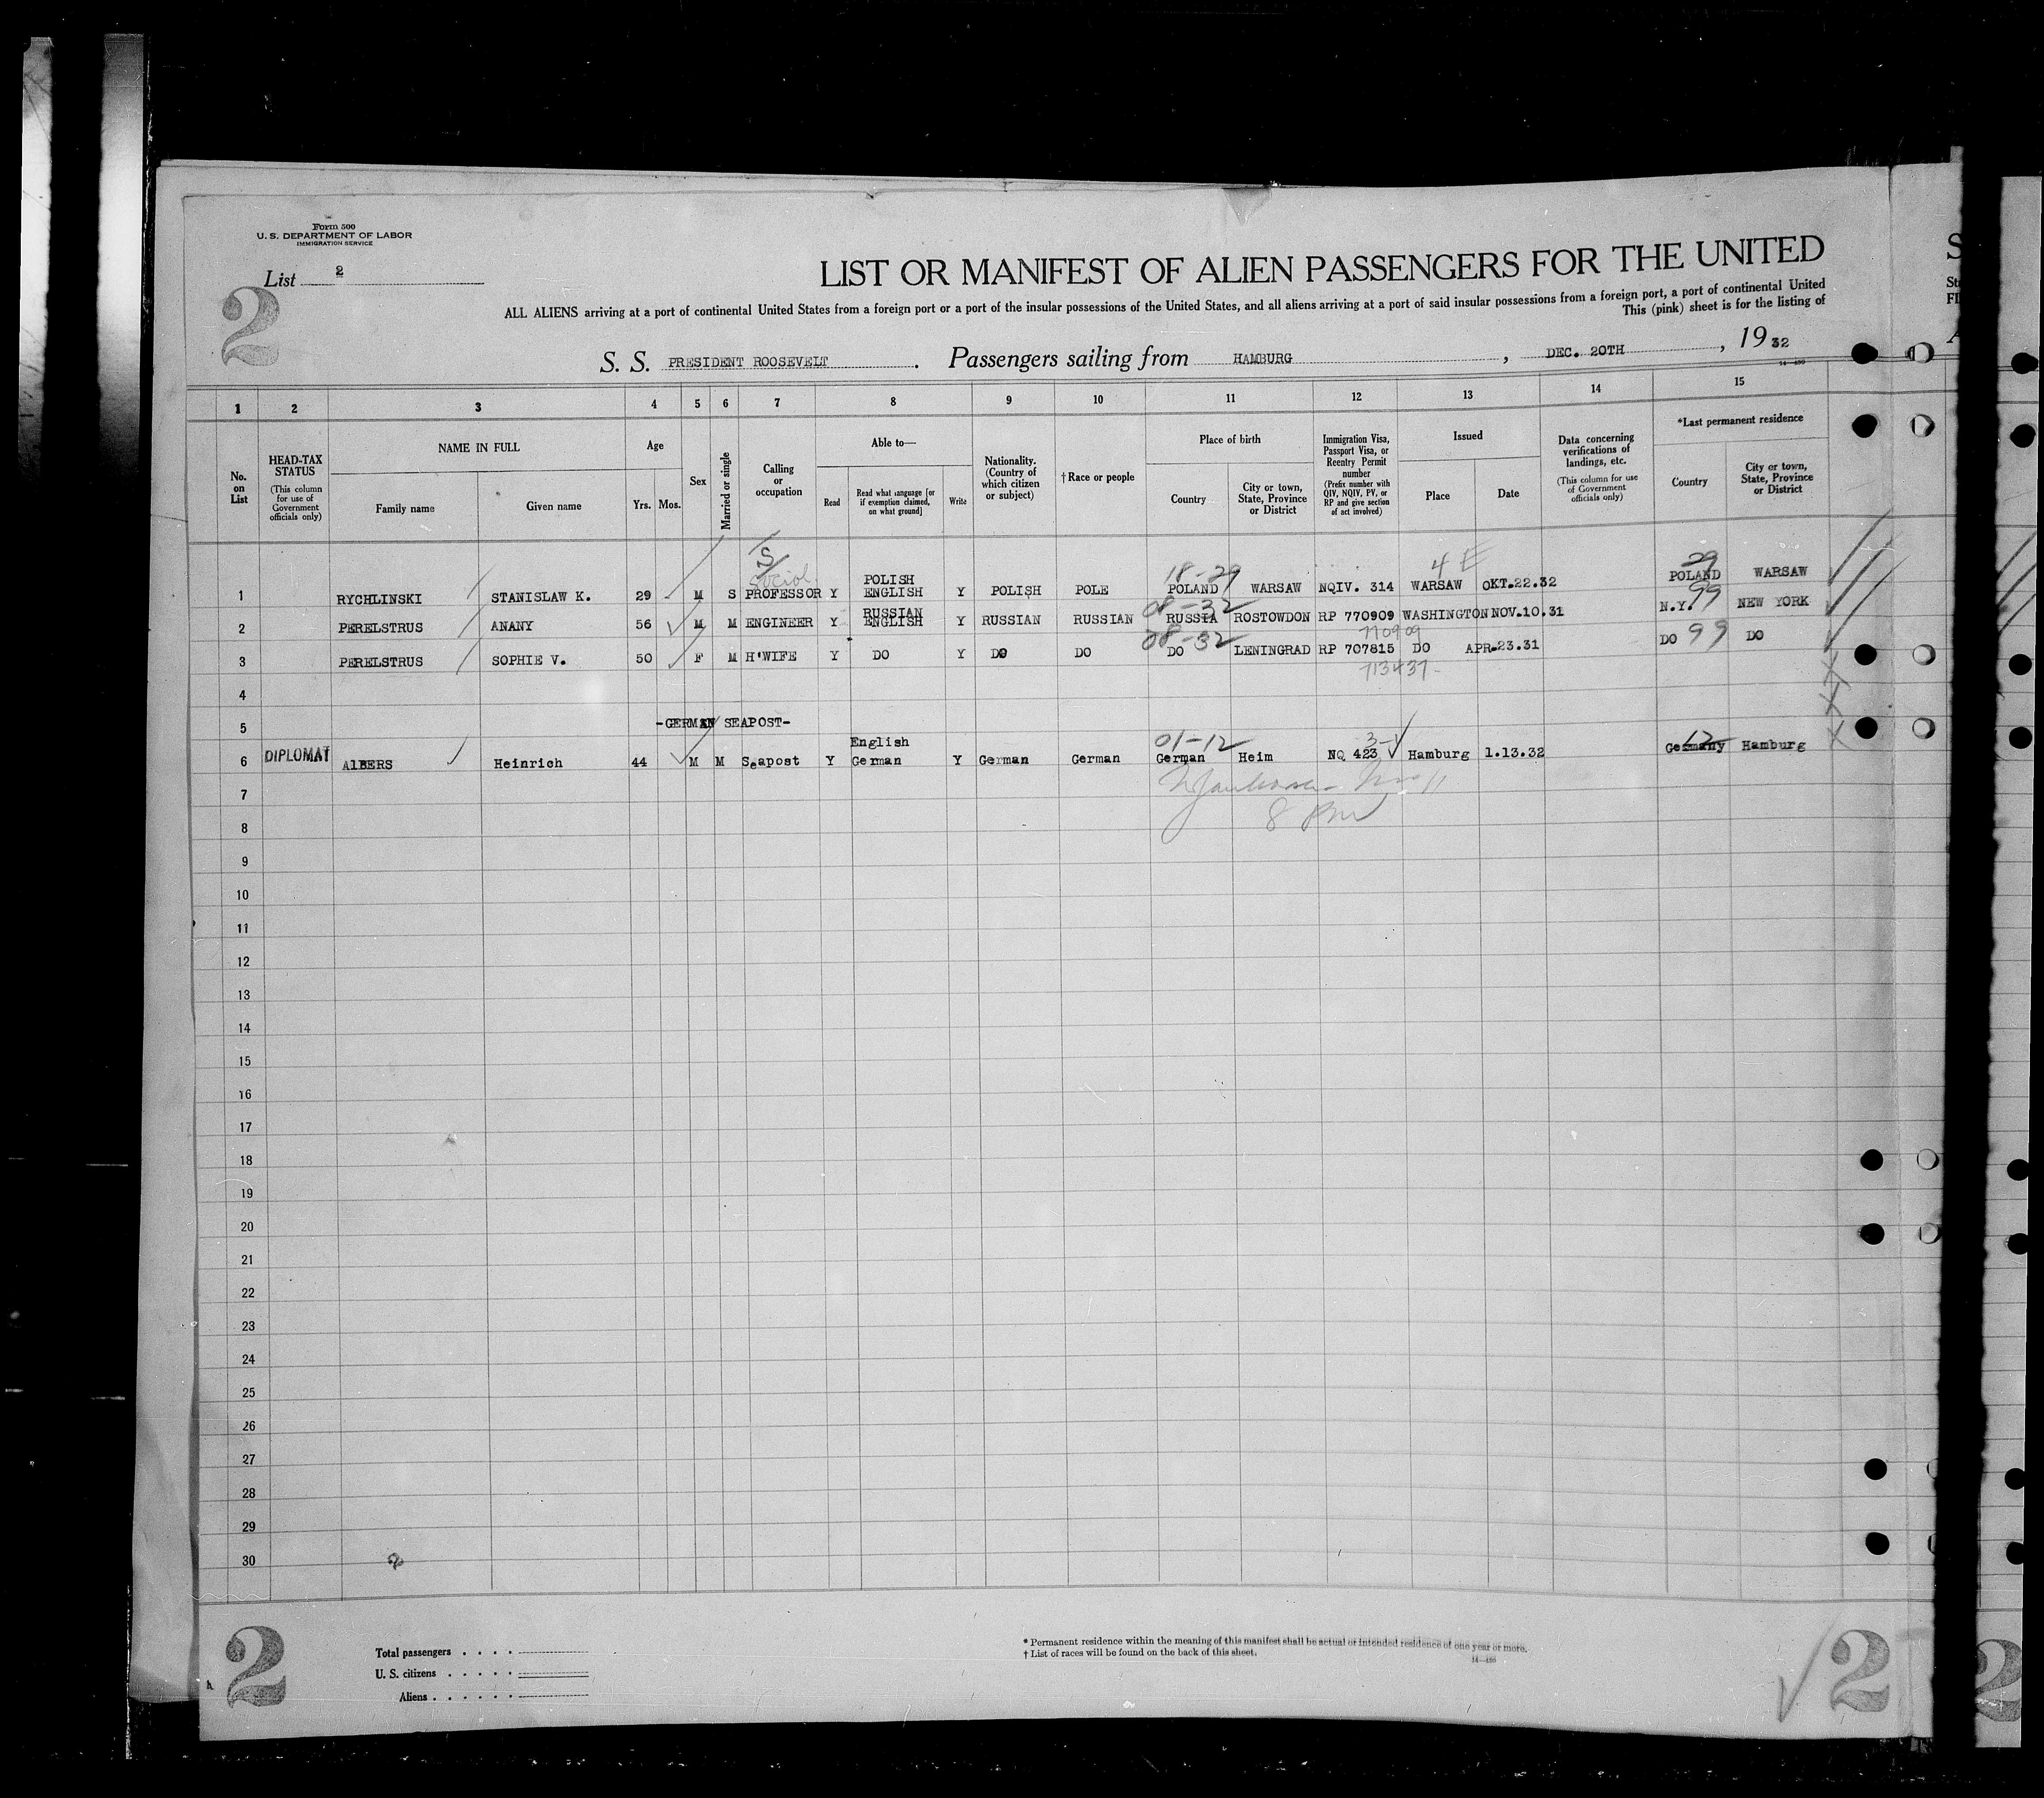 Form 500
U. S. DEPARTMENT OF LABOR
IMMIGRATION SERVICE
List 2
2
LIST OR MANIFEST OF ALIEN PASSENGERS FOR THE UNITED
ALL ALIENS arriving at a port of continental United States from a foreign port or a port of the insular possessions of the United States, and all aliens arriving at a port of said insular possessions from a foreign port, a port of continental United
This (pink) sheet is for the listing of
S. S. PRESIDENT ROOSEVELT. Passengers sailing from HAMBURG, DEC. 20TH, 19 32
1 2 3 4 5 6 7 8 9 10 11 12 13 14 15
No. on List
HEAD-TAX STATUS
(This column for use of Government officials only)
NAME IN FULL
Family name
Given name
Age
Yrs. Mos.
Sex
Married or single
Calling or occupation
Able to—
Read
Read what language [or if exemption claimed, on what ground]
Write
Nationality. (Country of which citizen or subject)
† Race or people
Place of birth
Country
City or town, State, Province or District
Immigration Visa, Passport Visa, or Reentry Permit number
(Prefix number with QIV, NQIV, PV, or RP and give section of act involved)
Issued
Place
Date
Data concerning verifications of landings, etc.
(This column for use of Government officials only)
*Last permanent residence
Country
City or town, State, Province or District
S
Social
18-29
4 E
29
POLISH
1 RYCHLINSKI STANISLAW K. 29 M S PROFESSOR Y ENGLISH Y POLISH POLE POLAND WARSAW NQIV. 314 WARSAW OKT.22.32 POLAND WARSAW
RUSSIAN
08-32
99
2 PERELSTRUS ANANY 56 M M ENGINEER Y ENGLISH Y RUSSIAN RUSSIAN RUSSIA ROSTOWDON RP 770909 WASHINGTON NOV.10.31 N.Y. NEW YORK
08-32
770909
3 PERELSTRUS SOPHIE V. 50 F M H'WIFE Y DO Y DO DO DO LENINGRAD RP 707815 DO APR.23.31 DO 99 DO
713437
4
5 -GERMAN SEAPOST-
English
01-12
3-
12
6 DIPLOMAT AlBERS Heinrich 44 M M Seapost Y German Y German German German Heim NQ 423 Hamburg 1.13.32 Germany Hamburg
7
8 8 PM
9
10
11
12
13
14
15
16
17
18
19
20
21
22
23
24
25
26
27
28
29
30
2
Total passengers
U. S. citizens
Aliens
* Permanent residence within the meaning of this manifest shall be actual or intended residence of one year or more.
† List of races will be found on the back of this sheet.
14—430
2